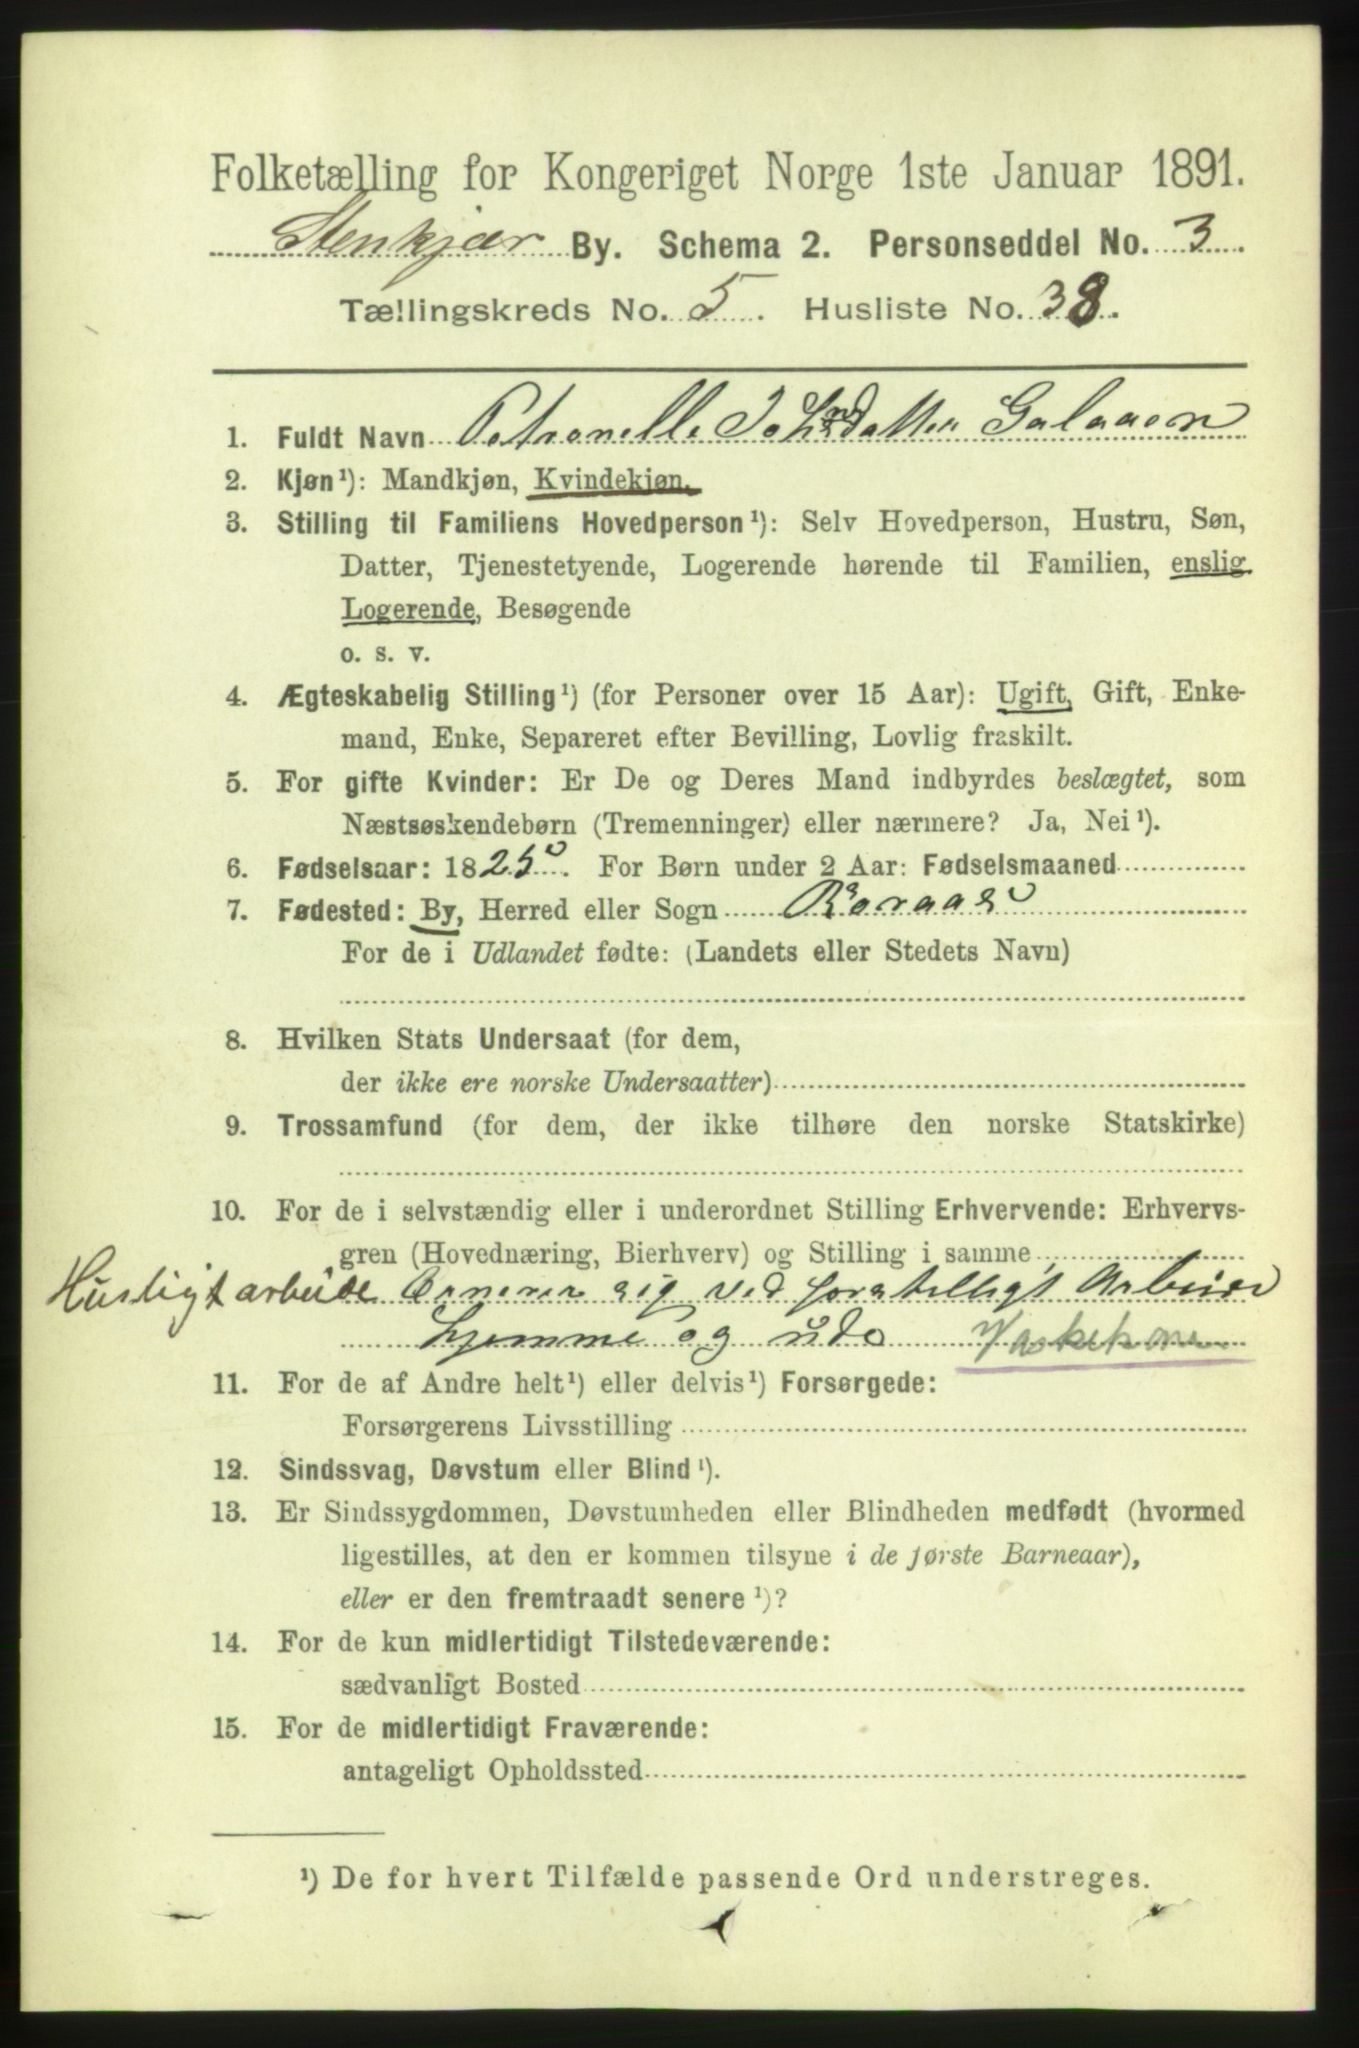 Folketælling for Kongeriget Norge 1ste Januar 1891.
Stenkjær By. Schema 2. Personseddel No. 3.
Tællingskreds No. 5. Husliste No. 38.
1. Fuldt Navn Petronelle Johndatter Galaaen
2. Kjøn¹): Mandkjøn, Kvindekjøn.
3. Stilling til Familiens Hovedperson¹): Selv Hovedperson, Hustru, Søn,
Datter, Tjenestetyende, Logerende hørende til Familien, enslig
Logerende, Besøgende
o. s. v.
4. Ægteskabelig Stilling¹) (for Personer over 15 Aar): Ugift, Gift, Enke-
mand, Enke, Separeret efter Bevilling, Lovlig fraskilt.
5. For gifte Kvinder: Er De og Deres Mand indbyrdes beslægtet, som
Næstsøskendebørn (Tremenninger) eller nærmere? Ja, Nei¹).
6. Fødselsaar: 1825. For Børn under 2 Aar: Fødselsmaaned
7. Fødested: By, Herred eller Sogn Røraas
For de i Udlandet fødte: (Landets eller Stedets Navn)
8. Hvilken Stats Undersaat (for dem,
der ikke ere norske Undersaatter)
9. Trossamfund (for dem, der ikke tilhøre den norske Statskirke)
10. For de i selvstændig eller i underordnet Stilling Erhvervende: Erhvervs-
gren (Hovednæring, Bierhverv) og Stilling i samme
Husligt arbeide Ernærer sig ved forskelligt Arbeide
hjemme og ude Vaskekone
11. For de af Andre helt¹) eller delvis¹) Forsørgede:
Forsørgerens Livsstilling
12. Sindssvag, Døvstum eller Blind¹).
13. Er Sindssygdommen, Døvstumheden eller Blindheden medfødt (hvormed
ligestilles, at den er kommen tilsyne i de første Barneaar),
eller er den fremtraadt senere¹)?
14. For de kun midlertidigt Tilstedeværende:
sædvanligt Bosted
15. For de midlertidigt Fraværende:
antageligt Opholdssted
¹) De for hvert Tilfælde passende Ord understreges.